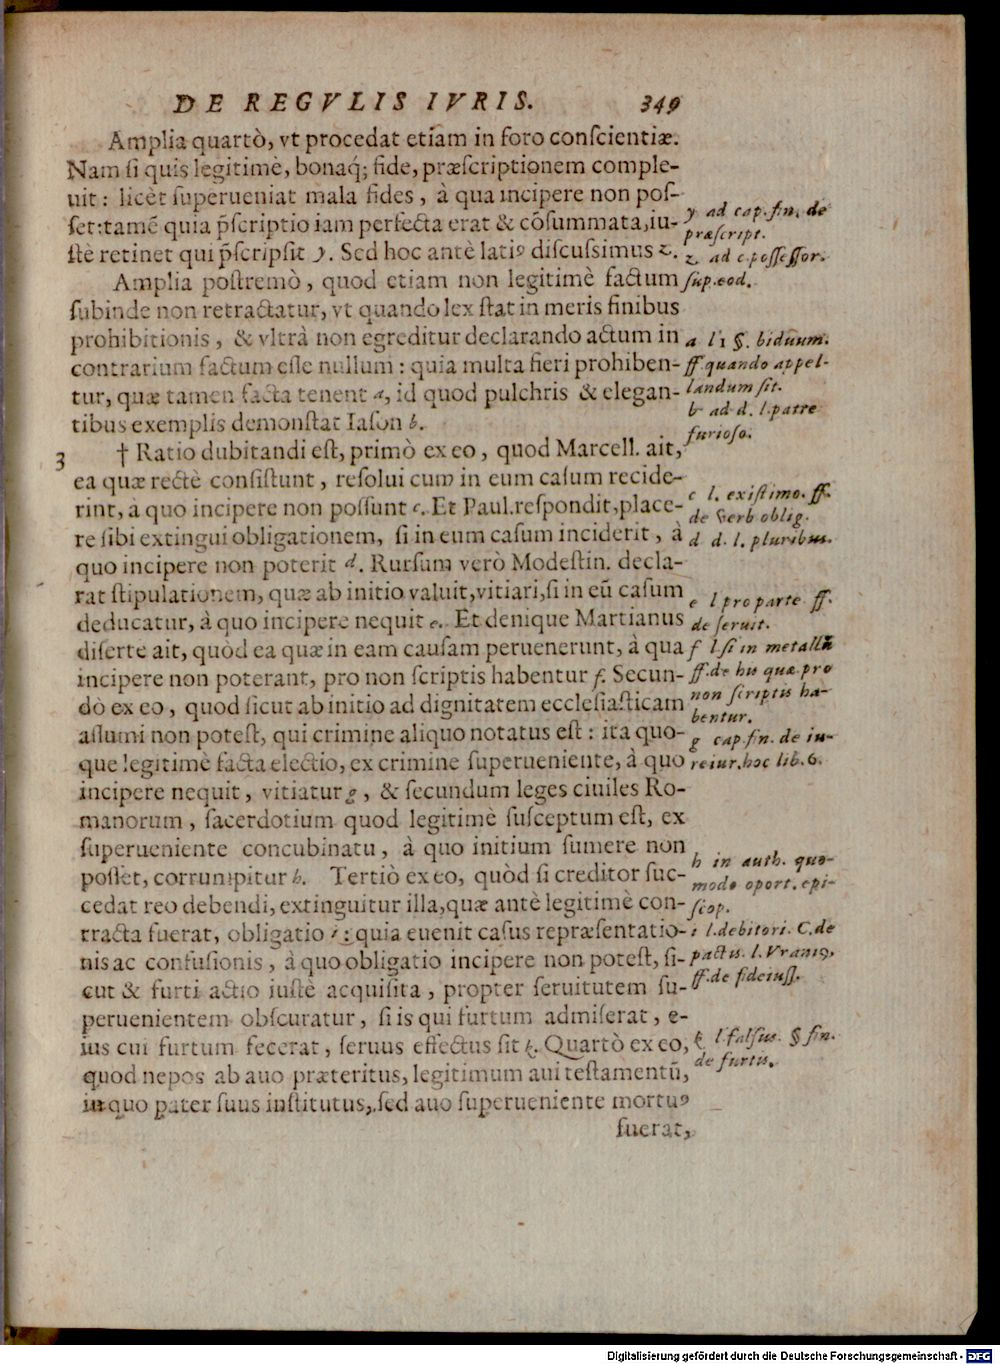 DE REGVLIS IVRIS. 349
Amplia quartò, vt procedat etiam in foro conſcientiæ.
Nam ſi quis legitimè, bonaq́; fide, præſcriptionem comple-
uit: licèt ſuperueniat mala fides, à qua incipere non poſ-
ſet:tamẽ quia p̃ſcriptio iam perfecta erat & cõſummata,iu-
ſtè retinet qui p̃ſcripſit y. Sed hoc antè latiꝰ diſcuſſimus z.
Amplia poſtremò, quod etiam non legitimè factum
ſubinde non retractatur, vt quando lex ſtat in meris finibus
prohibitionis, & vltrà non egreditur declarando actum in
contrarium factum eſſe nullum: quia multa fieri prohiben-
tur, quæ tamen facta tenent a, id quod pulchris & elegan-
tibus exemplis demonſtat Iaſon b.
† Ratio dubitandi eſt, primò ex eo, quod Marcell. ait,
ea quæ rectè conſiſtunt, reſolui cum in eum caſum recide-
rint, à quo incipere non poſſunt c. Et Paul.reſpondit,place-
re ſibi extingui obligationem, ſi in eum caſum inciderit, à
quo incipere non poterit d. Rurſum verò Modeſtin. decla-
rat ſtipulationem, quæ ab initio valuit,vitiari,ſi in eũ caſum
deducatur, à quo incipere nequit e. Et denique Martianus
diſerte ait, quòd ea quæ in eam cauſam peruenerunt, à qua
incipere non poterant, pro non ſcriptis habentur f. Secun-
dò ex eo, quod ſicut ab initio ad dignitatem eccleſiaſticam
aſſumi non poteſt, qui crimine aliquo notatus eſt: ita quo-
que legitimè facta electio, ex crimine ſuperueniente, à quo
incipere nequit, vitiatur g, & ſecundum leges ciuiles Ro-
manorum, ſacerdotium quod legitimè ſuſceptum eſt, ex
ſuperueniente concubinatu, à quo initium ſumere non
poſſet, corrumpitur h. Tertiò ex eo, quòd ſi creditor ſuc-
cedat reo debendi, extinguitur illa,quæ antè legitimè con-
tracta fuerat, obligatio i: quia euenit caſus repræſentatio-
nis ac confuſionis, à quo obligatio incipere non poteſt, ſi-
cut & furti actio iuſtè acquiſita, propter ſeruitutem ſu-
peruenientem obſcuratur, ſi is qui furtum admiſerat, e-
ius cui furtum fecerat, ſeruus effectus ſit k. Quartò ex eo,
quod nepos ab auo præteritus, legitimum aui teſtamentũ,
in quo pater ſuus inſtitutus, ſed auo ſuperueniente mortuꝰ
fuerat,
3
y ad cap. fin. de
præſcript.
z ad c. poſſeſſor.
ſup. eod.
a l 1 §. biduum.
ff. quando appel-
landum ſit.
b ad d. l. patre
furioſo.
c l. exiſtimo. ff.
de verb oblig.
d d. l. pluribus.
e l pro parte ff.
de ſeruit.
f l ſi in metallũ
ff. de his quæ pro
non ſcriptis ha-
bentur.
g cap. fin. de iu-
reiur. hoc lib. 6.
h in auth. quo-
modo oport. epi-
ſcop.
i l. debitori. C. de
pactis. l. Vraniꝰ,
ff. de fideiuſſ.
k l. falſus. § fin.
de furtis.
Digitalisierung gefördert durch die Deutsche Forschungsgemeinschaft - DFG